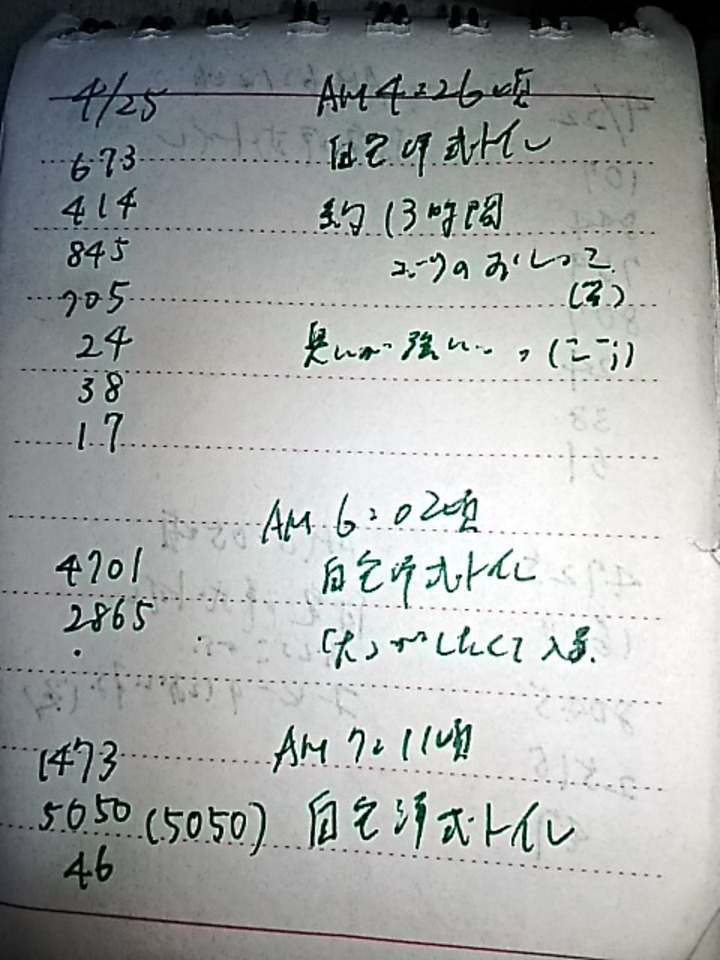 4/25 AM4:26頃
673 自宅洋式トイレ
414 約13時間
845 おしっこ
705 (笑)
24 臭いが強い
38
17
AM 6:02頃
4701 自宅洋式トイレ
2865 「大」がしたくて入る.
AM 7:11頃
1473
5050 (5050) 自宅洋式トイレ
46